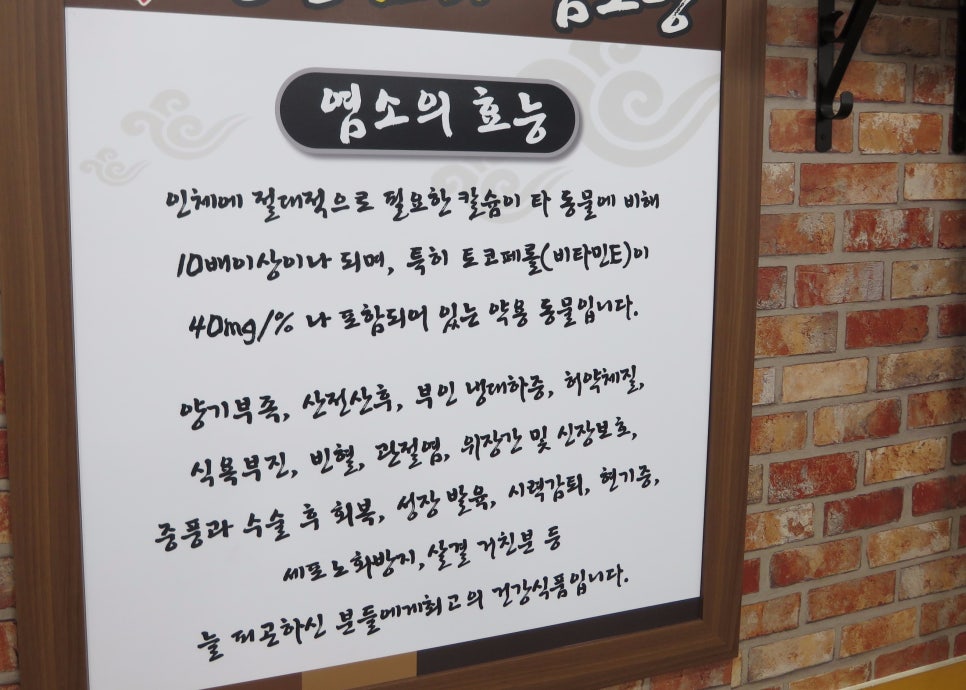 염소의 효능
인체에 절대적으로 필요한 칼슘이 타 동물에 비해
10배이상이나 되며, 특히 토코페롤(비타민E)이
40mg/% 나 포함되어 있는 약용 동물입니다.
양기부족, 산전산후, 부인 냉대하증, 허약체질,
식욕부진, 빈혈, 관절염, 위장간 및 신장보호,
중풍과 수술 후 회복, 성장 발육, 시력감퇴, 현기증,
세포노화방지, 살결 거친분 등
늘 피곤하신 분들에게최고의 건강식품입니다.